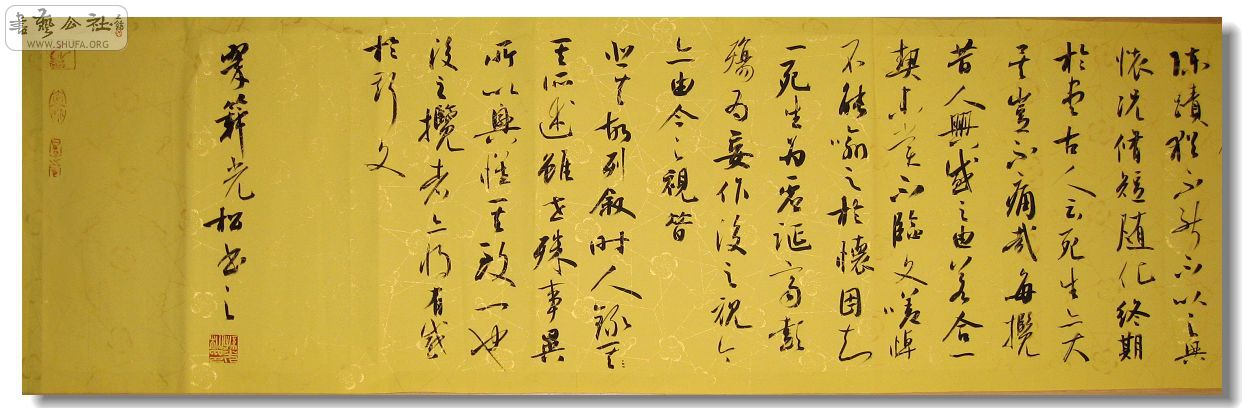 陳蹟猶不能不以之興
懷况脩短随化終期
於盡古人云死生亦大
矣豈不痛哉每攬
昔人興感之由若合一
契未嘗不臨文嗟悼
不能喻之於懷固知
一死生為虛誕齊彭
殤為妄作後之視今
亦由今之視昔
悲夫故列叙時人錄其
其所述雖世殊事異
所以興懷其致一也
後之攬者亦將有感
於斯文
薛光松书之
書藝公社
WWW.SHUFA.ORG